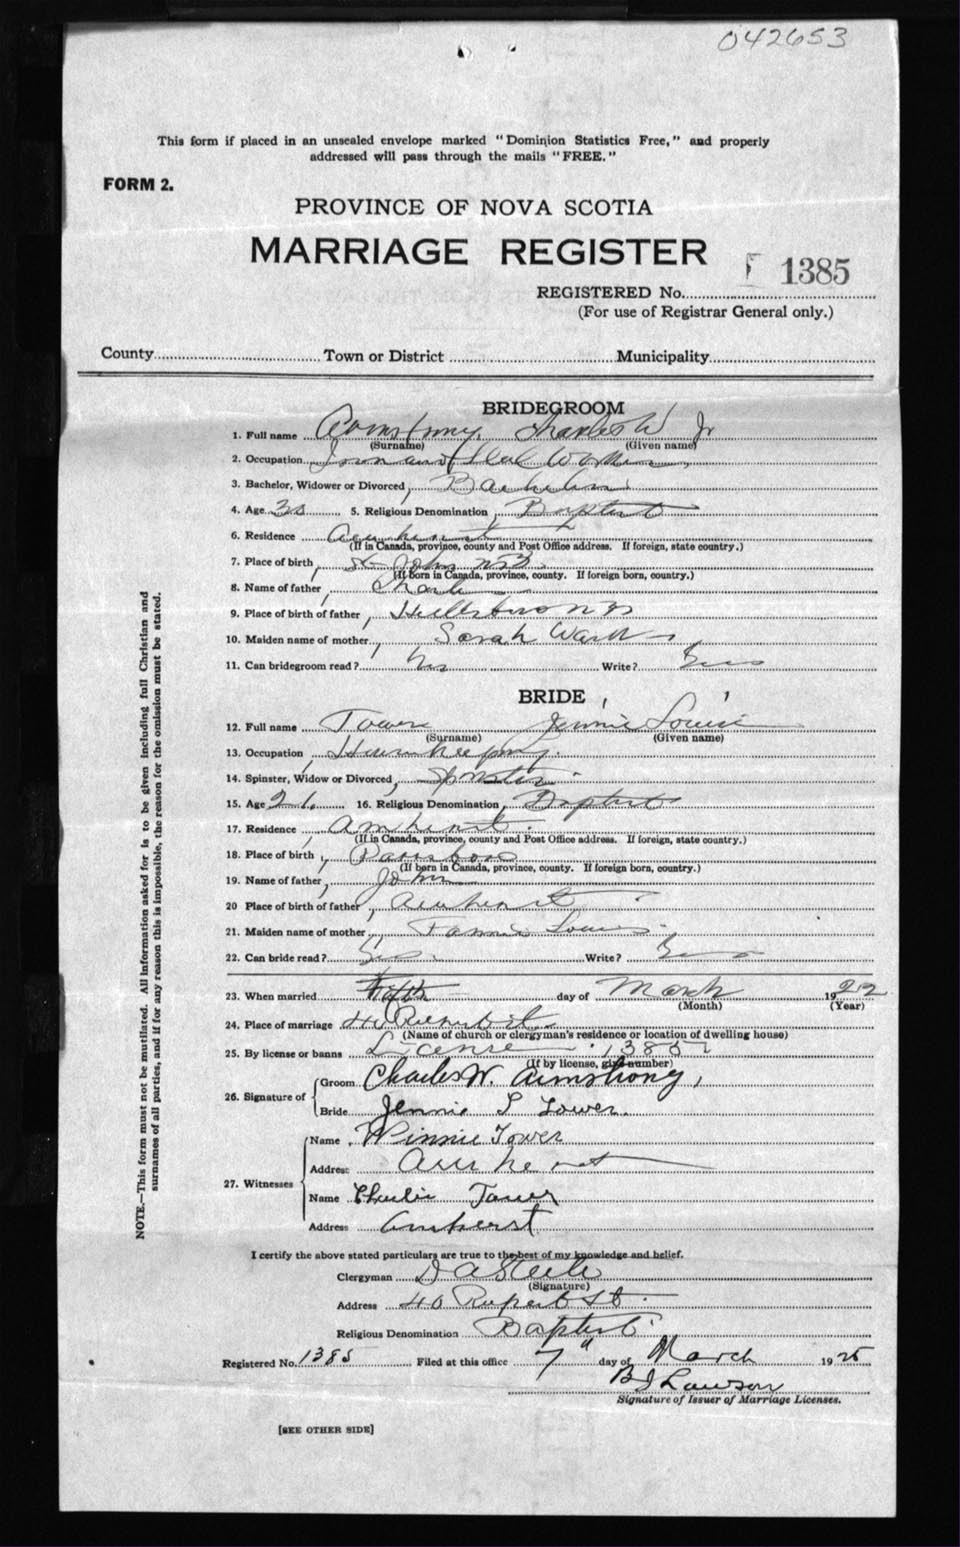 042653
This form if placed in an unsealed envelope marked "Dominion Statistics Free," and properly
addressed will pass through the mails "FREE."
FORM 2.
PROVINCE OF NOVA SCOTIA
MARRIAGE REGISTER
1385
REGISTERED No.
(For use of Registrar General only.)
County Town or District Municipality
BRIDEGROOM
1. Full name Armstrong, Charles W Jr
(Surname) (Given name)
2. Occupation Iron and Steel Worker
3. Bachelor, Widower or Divorced, Bachelor
4. Age 5. Religious Denomination, Baptist
6. Residence Amherst
(If in Canada, province, county and Post Office address. If foreign, state country.)
7. Place of birth, St John N B
(If born in Canada, province, county. If foreign born, country.)
8. Name of father, Charles
9. Place of birth of father, Hillsboro N B
10. Maiden name of mother, Sarah Ward
11. Can bridegroom read? Yes Write? Yes
BRIDE
12. Full name Tower Jennie Louise
(Surname) (Given name)
13. Occupation Housekeeping
14. Spinster, Widow or Divorced, Spinster
15. Age 21 16. Religious Denomination, Baptist
17. Residence, Amherst
(If in Canada, province, county and Post Office address. If foreign, state country.)
18. Place of birth, Parrsboro
(If born in Canada, province, county. If foreign born, country.)
19. Name of father, John
20 Place of birth of father, Amherst
21. Maiden name of mother, Fannie
22. Can bride read? Yes Write? Yes
23. When married Fifth day of March 19
(Month) (Year)
24. Place of marriage 40 Rupert St.
(Name of church or clergyman's residence or location of dwelling house)
25. By license or banns License
(If by license, give number)
26. Signature of
Groom Charles W. Armstrong,
Bride Jennie L Tower.
27. Witnesses
Name, Winnie Tower
Address Amherst
Name Charlie Tower
Address Amherst
I certify the above stated particulars are true to the best of my knowledge and belief.
Clergyman D A Steele
(Signature)
Address 40 Rupert St.
Religious Denomination Baptist
Registered No. 1385 Filed at this office 7" day of March 1925
B J Lawson
Signature of Issuer of Marriage Licenses.
[SEE OTHER SIDE]
NOTE.—This form must not be mutilated. All information asked for is to be given including full Christian and
surnames of all parties, and if for any reason this is impossible, the reason for the omission must be stated.